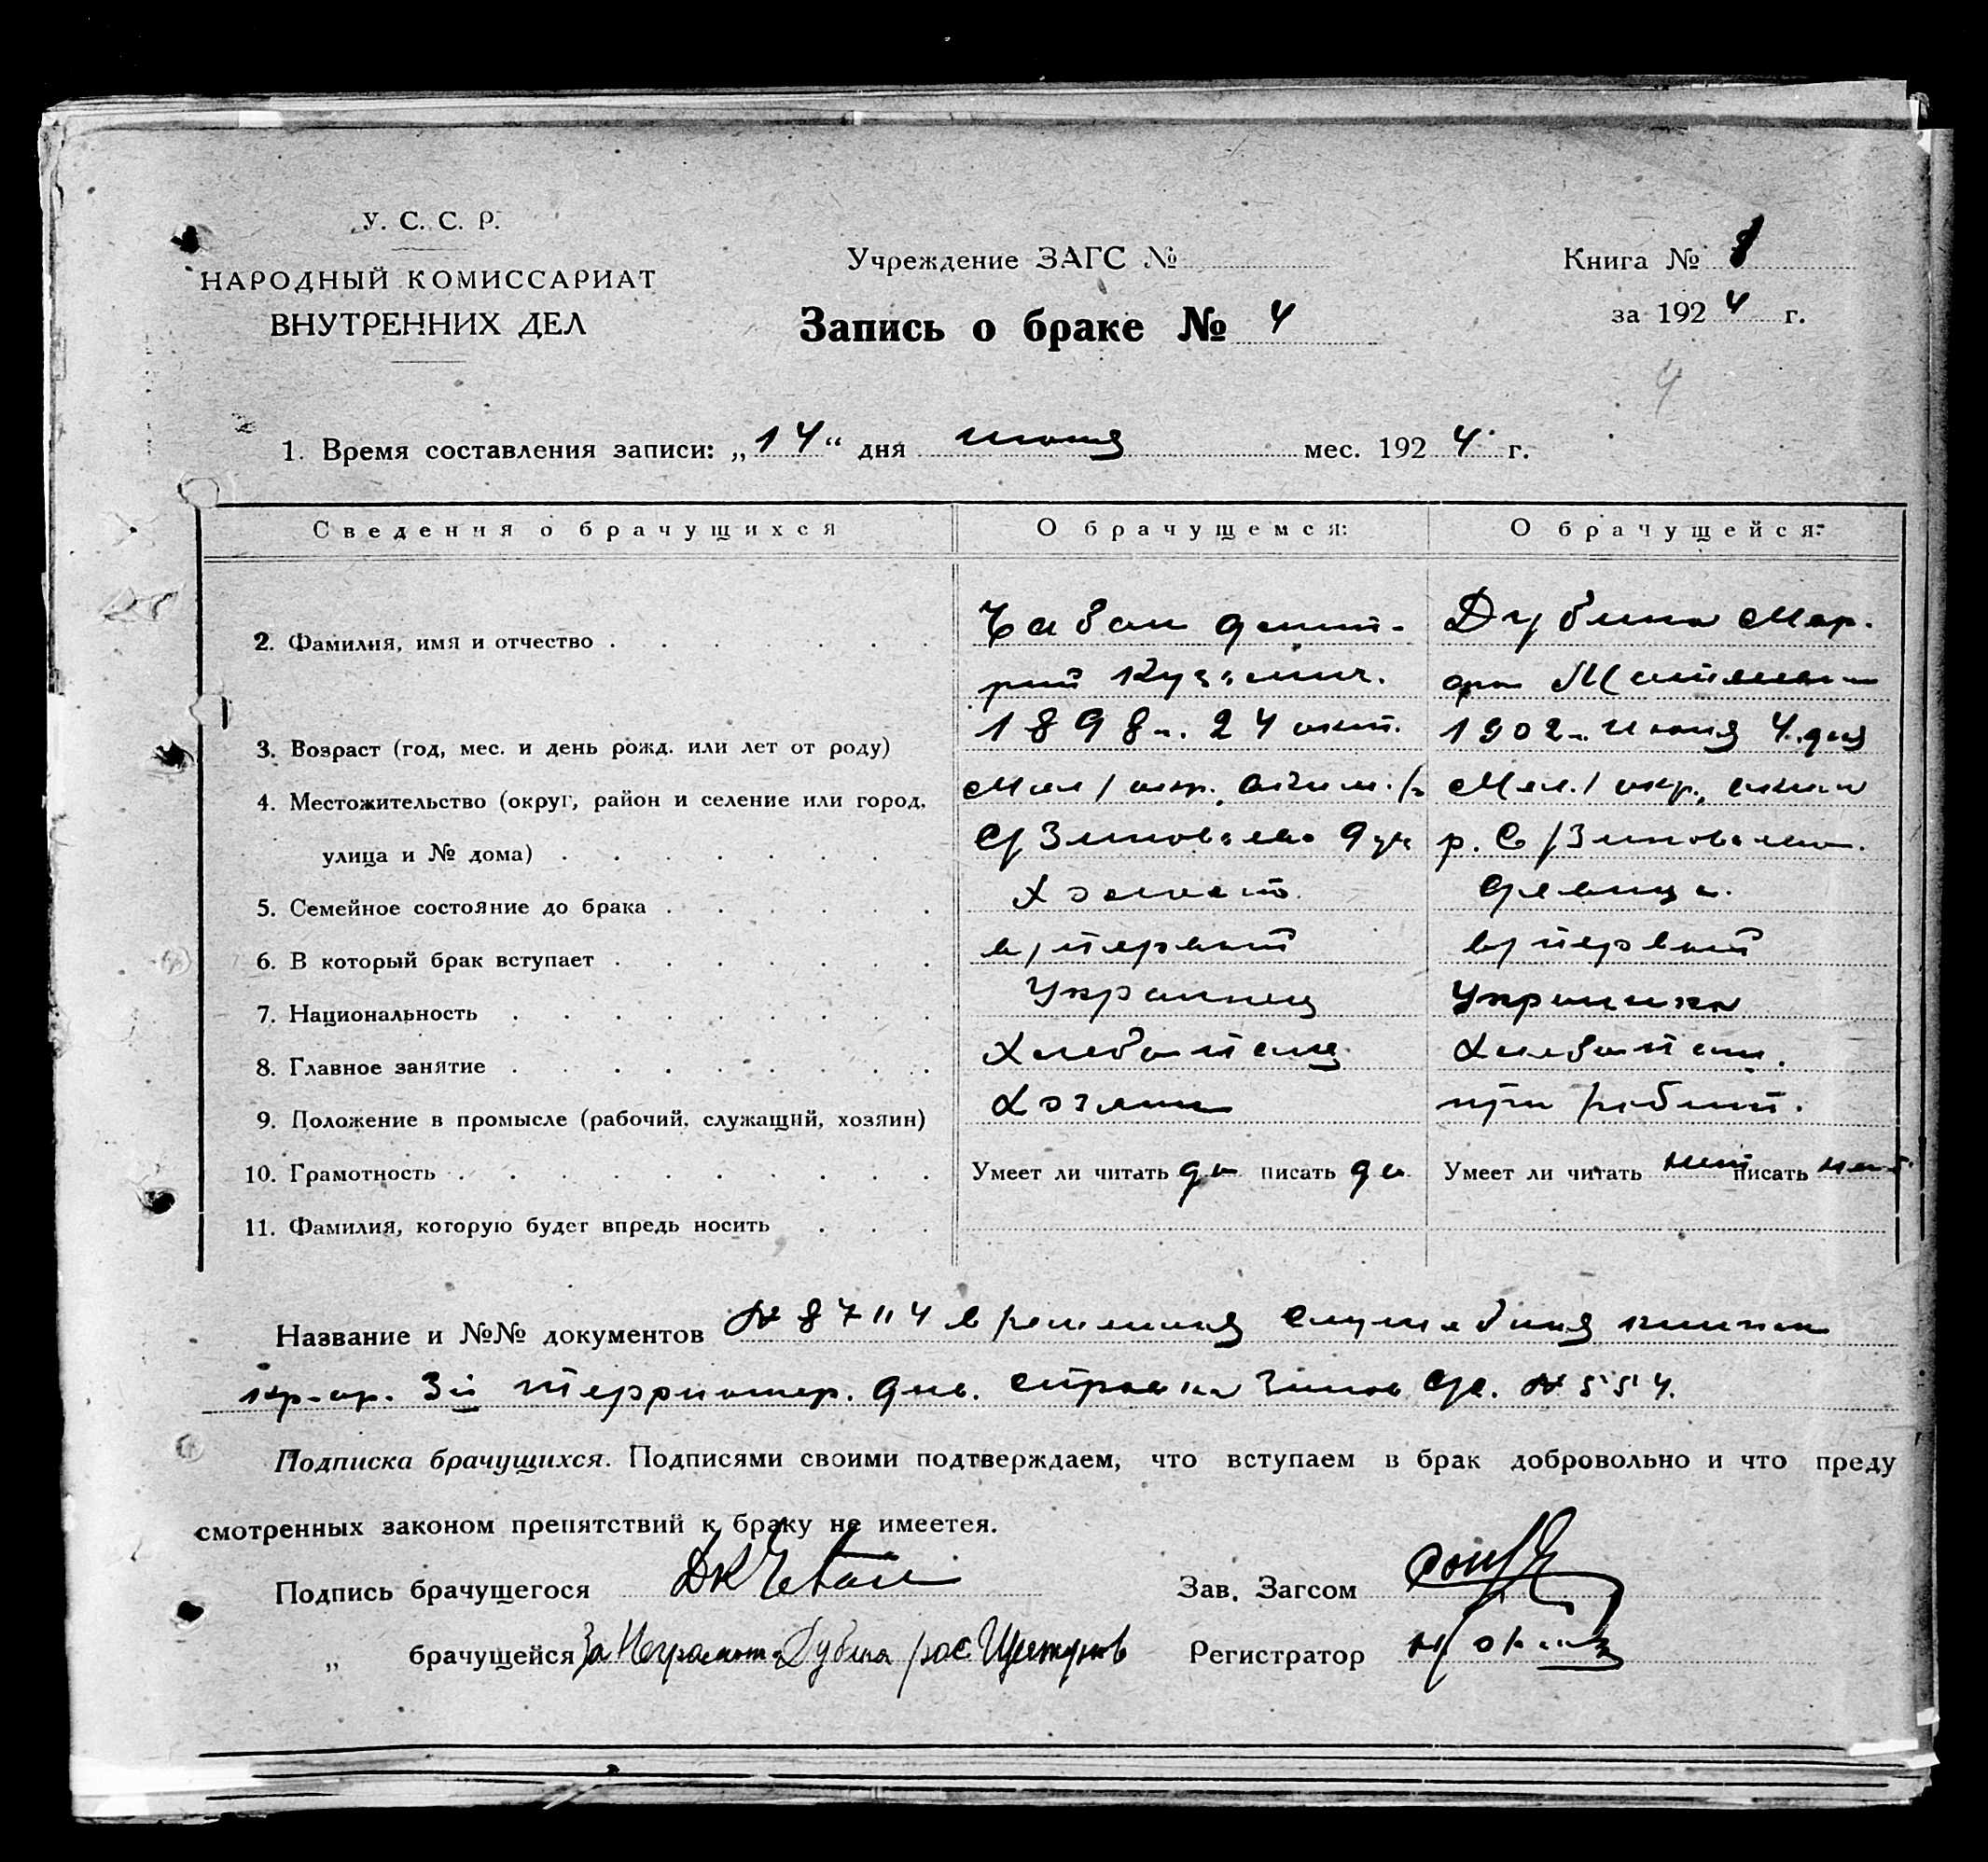 У. С. С. Р.
НАРОДНЫЙ КОМИССАРИАТ
ВНУТРЕННИХ ДЕЛ
Учреждение ЗАГС №
Запись о браке № 4
Книга №
за 1924 г.
4
1. Время составления записи: „14“ дня июня мес. 1924 г.
Сведения о брачущихся О брачущемся: О брачущейся:
2. Фамилия, имя и отчество Чабан Дмит- Дубина Мар.
рий Кузьмич.
3. Возраст (год, мес. и день рожд. или лет от роду) 1898 г. 24 окт. 1902 г. июня 4 дня
4. Местожительство (округ, район и селение или город, Мел/окр., Аким./р Мел./окр., Аким
улица и № дома) С/Зиновьево р. С/Зиновьево.
5. Семейное состояние до брака Холост. Девица.
6. В который брак вступает в/первый в/первый
7. Национальность Украинец Украинка
8. Главное занятие Хлебопашец Хлебопаш.
9. Положение в промысле (рабочий, служащий, хозяин) Хозяин при
10. Грамотность Умеет ли читать да писать да Умеет ли читать нет писать нет
11. Фамилия, которую будет впредь носить
Название и №№ документов № временная служебная книжка
3й территор. див. справка Зинов № 554.
Подписка брачущихся. Подписями своими подтверждаем, что вступаем в брак добровольно и что преду
смотренных законом препятствий к браку не имеетея.
Подпись брачущегося ДКЧабан Зав. Загсом
„ брачущейся За Неграмотн Дубина рос Регистратор